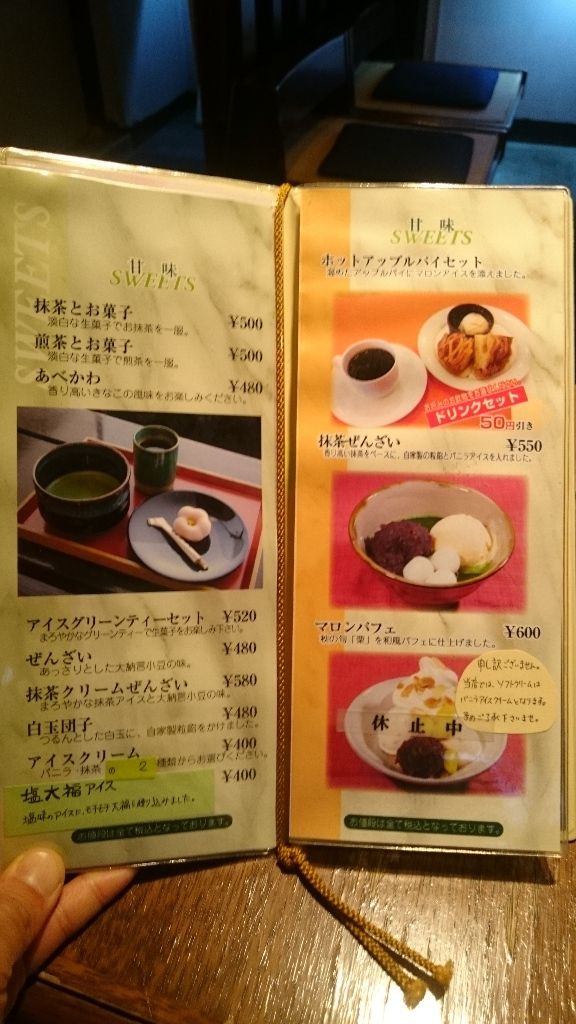 SWEETS
甘味
SWEETS
抹茶とお菓子 ¥500
淡白な生菓子でお抹茶を一服。
煎茶とお菓子 ¥500
淡白な生菓子で煎茶を一服。
あべかわ ¥480
香り高いきなこの風味をお楽しみください。
アイスグリーンティーセット ¥520
まろやかなグリーンティーで生菓子をお楽しみ下さい。
ぜんざい ¥480
あっさりとした大納言小豆の味。
抹茶クリームぜんざい ¥580
まろやかな抹茶アイスと大納言小豆の味。
白玉団子 ¥480
つるんとした白玉に、自家製粒餡をかけました。
アイスクリーム ¥400
バニラ・抹茶 の 2 種類からお選びください。
塩大福アイス ¥400
塩味のアイスに、モチモチ大福を練り込みました。
お値段は全て税込となっております。
甘味
SWEETS
ホットアップルパイセット
温めたアップルパイにマロンアイスを添えました。
ドリンクセット
50円引き
抹茶ぜんざい ¥550
香り高い抹茶をベースに、自家製の粒餡とバニラアイスを入れました。
マロンパフェ ¥600
秋の旬「栗」を和風パフェに仕上げました。
申し訳ございません。
当店では、ソフトクリームは
バニラアイスクリームとなります。
予めご了承下さいませ。
休止中
お値段は全て税込となっております。